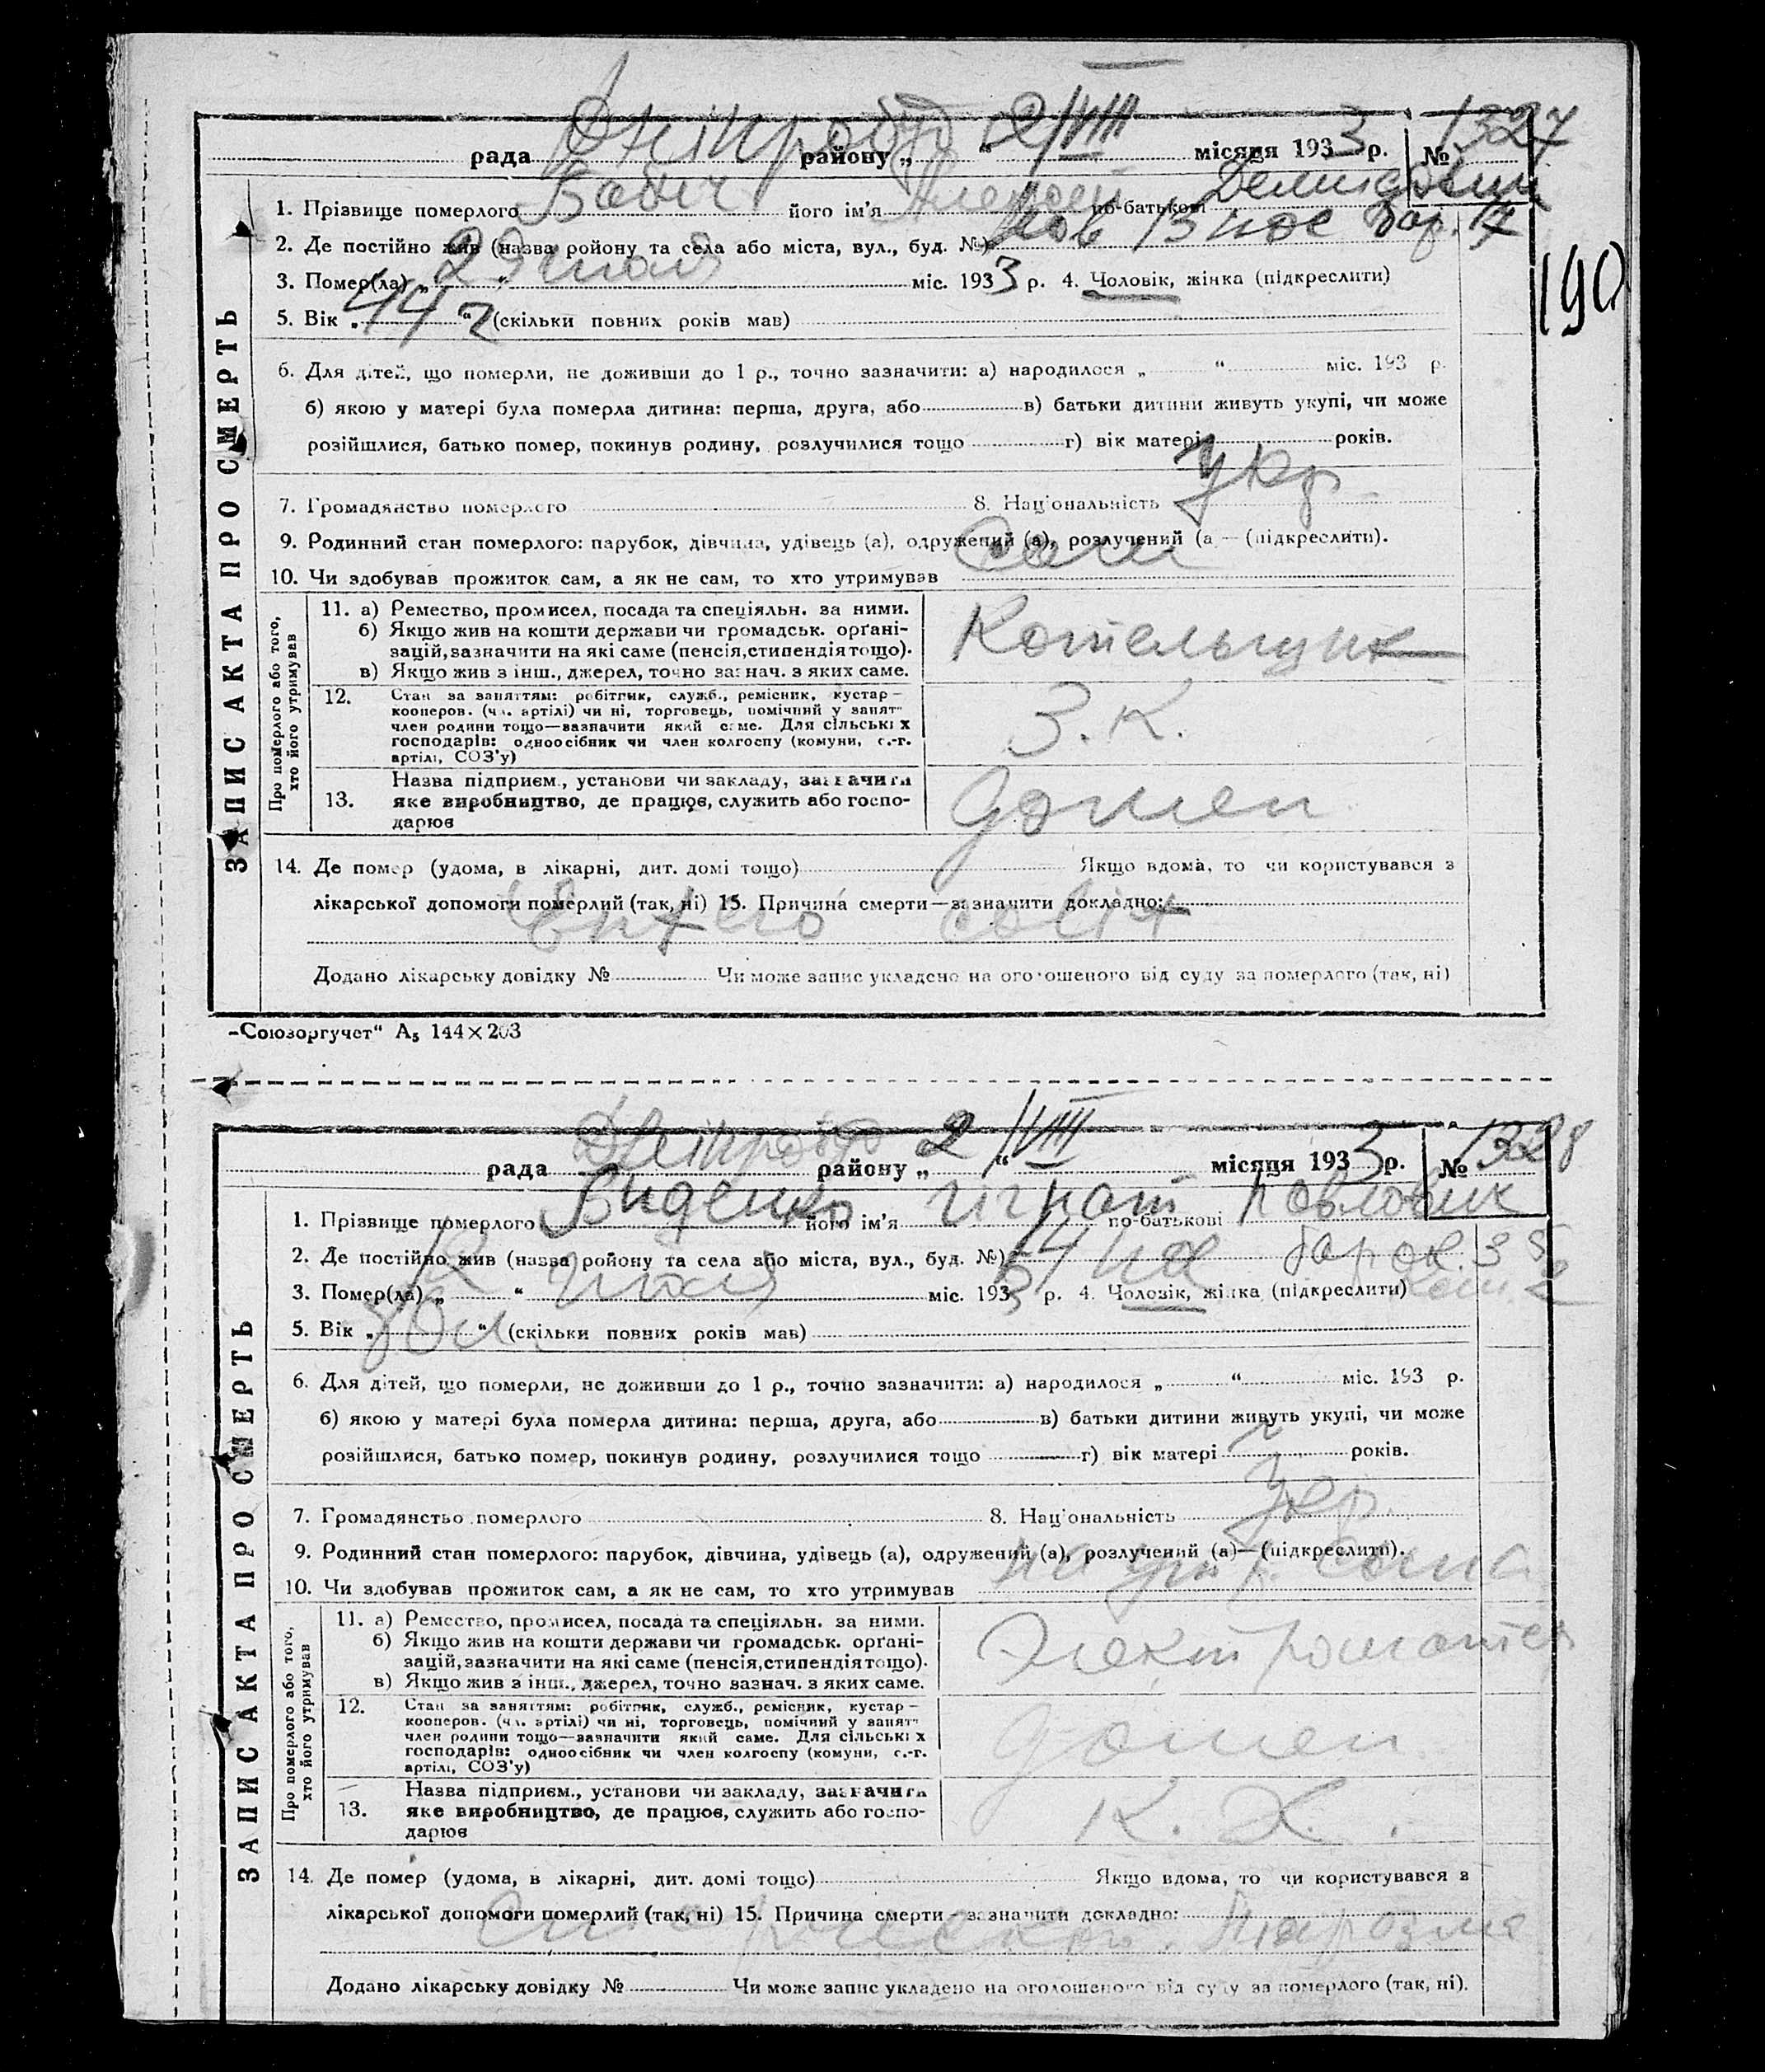 рада Дніпробуд району „ 2/VIII “ місяця 1933 р. № 1327
1. Прізвище померлого Бабич його ім'я Алексей по-батькові Демидович
2. Де постійно жив (назва ройону та села або міста, вул., буд. №) 13 пос бар. 17
190
3. Помер(ла) „ 29 июля “ міс. 1933 р. 4. Чоловік, жінка (підкреслити)
5. Вік „ 44 “ (скільки повних років мав)
6. Для дітей, що померли, не доживши до 1 р., точно зазначити: а) народилося „ “ міс. 193 р.
б) якою у матері була померла дитина: перша, друга, або в) батьки дитини живуть укупі, чи може
розійшлися, батько помер, покинув родину, розлучилися тощо г) вік матері років.
7. Громадянство померлого 8. Національність укр.
9. Родинний стан померлого: парубок, дівчина, удівець (а), одружений (а), розлучений (а — (підкреслити).
10. Чи здобував прожиток сам, а як не сам, то хто утримував Сам
ЗАПИС АКТА ПРО СМЕРТЬ
Про померлого або того, хто його утримував
11. а) Ремество, промисел, посада та спеціяльн. за ними.
б) Якщо жив на кошти держави чи громадськ. орґані-
зацій, зазначити на які саме (пенсія, стипендія тощо).
в) Якщо жив з інш., джерел, точно зазнач. з яких саме.
Котельщик
12. Стан за заняттям: робітник, служб., ремісник, кустар —
кооперов. (чл. артілі) чи ні, торговець, помічний у занят-
член родини тощо—зазначити який саме. Для сільських
господарів: одноосібник чи член колгоспу (комуни, с.-г.
артілі, СОЗ'у)
З. К.
13. Назва підприєм., установи чи закладу, зазначити
яке виробництво, де працює, служить або госпо-
дарює
Домен
14. Де помер (удома, в лікарні, дит. домі тощо) Якщо вдома, то чи користувався з
лікарської допомоги померлий (так, ні) 15. Причина смерти—зазначити докладно:
Entero colit
Додано лікарську довідку № Чи може запис укладено на оголошеного від суду за померлого (так, ні)
„Союзоргучет“ А5 144×203
рада Дніпробуд району „ 2/VIII “ місяця 1933 р. № 1328
1. Прізвище померлого Биденко його ім'я Игнат по-батькові Павлович
2. Де постійно жив (назва ройону та села або міста, вул., буд. №) 4 барак. 35
3. Помер(ла) „ “ июля міс. 1933 р. 4. Чоловік, жінка (підкреслити) ком. 2
5. Вік „ “ (скільки повних років мав)
6. Для дітей, що померли, не доживши до 1 р., точно зазначити: а) народилося „ “ міс. 193 р.
б) якою у матері була померла дитина: перша, друга, або в) батьки дитини живуть укупі, чи може
розійшлися, батько помер, покинув родину, розлучилися тощо г) вік матері років.
7. Громадянство померлого 8. Національність Укр.
9. Родинний стан померлого: парубок, дівчина, удівець (а), одружений (а), розлучений (а)—(підкреслити).
10. Чи здобував прожиток сам, а як не сам, то хто утримував сина
ЗАПИС АКТА ПРО СМЕРТЬ
Про померлого або того, хто його утримував
11. а) Ремество, промисел, посада та спеціяльн. за ними.
б) Якщо жив на кошти держави чи громадськ. орґані-
зацій, зазначити на які саме (пенсія, стипендія тощо).
в) Якщо жив з інш., джерел, точно зазнач. з яких саме.
12. Стан за заняттям: робітник, служб., ремісник, кустар —
кооперов. (чл. артілі) чи ні, торговець, помічний у занят-
член родини тощо—зазначити який саме. Для сільських
господарів: одноосібник чи член колгоспу (комуни, с.-г.
артілі, СОЗ'у)
Домен
13. Назва підприєм., установи чи закладу, зазначити
яке виробництво, де працює, служить або госпо-
дарює
К. Х.
14. Де помер (удома, в лікарні, дит. домі тощо) Якщо вдома, то чи користувався з
лікарської допомоги померлий (так, ні) 15. Причина смерти—зазначити докладно:
Старческий Маразм
Додано лікарську довідку № Чи може запис укладено на оголошеного від суду за померлого (так, ні).